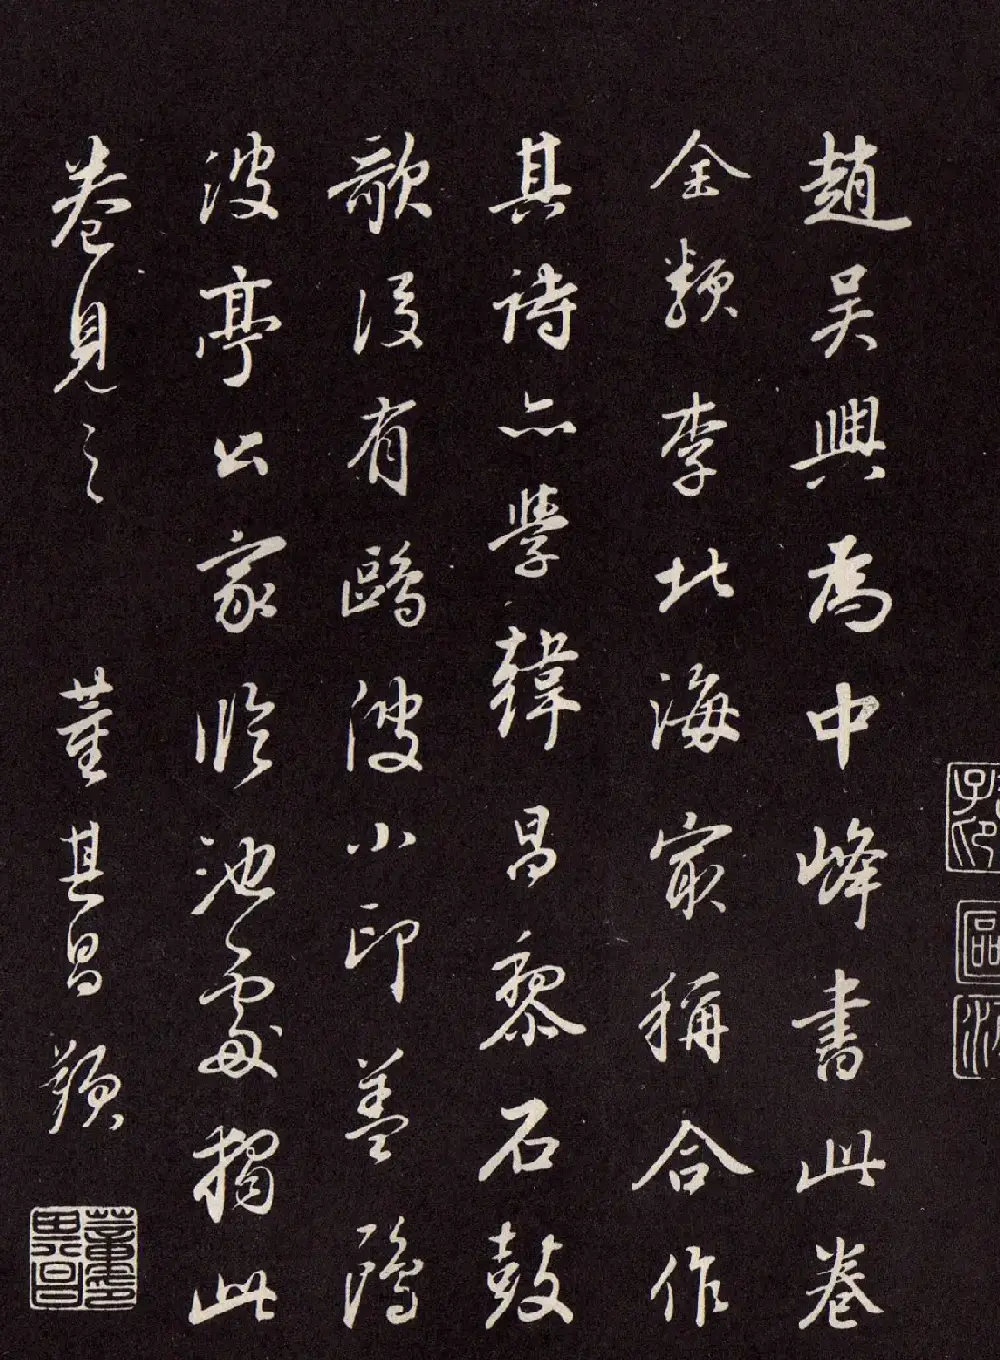 趙吳興為中峰書此卷
全類李北海最稱合作
其詩亦學韓昌黎石鼓
歌後有鷗波小印盖鷗
波亭公家臨池處獨此
卷見之 董其昌題